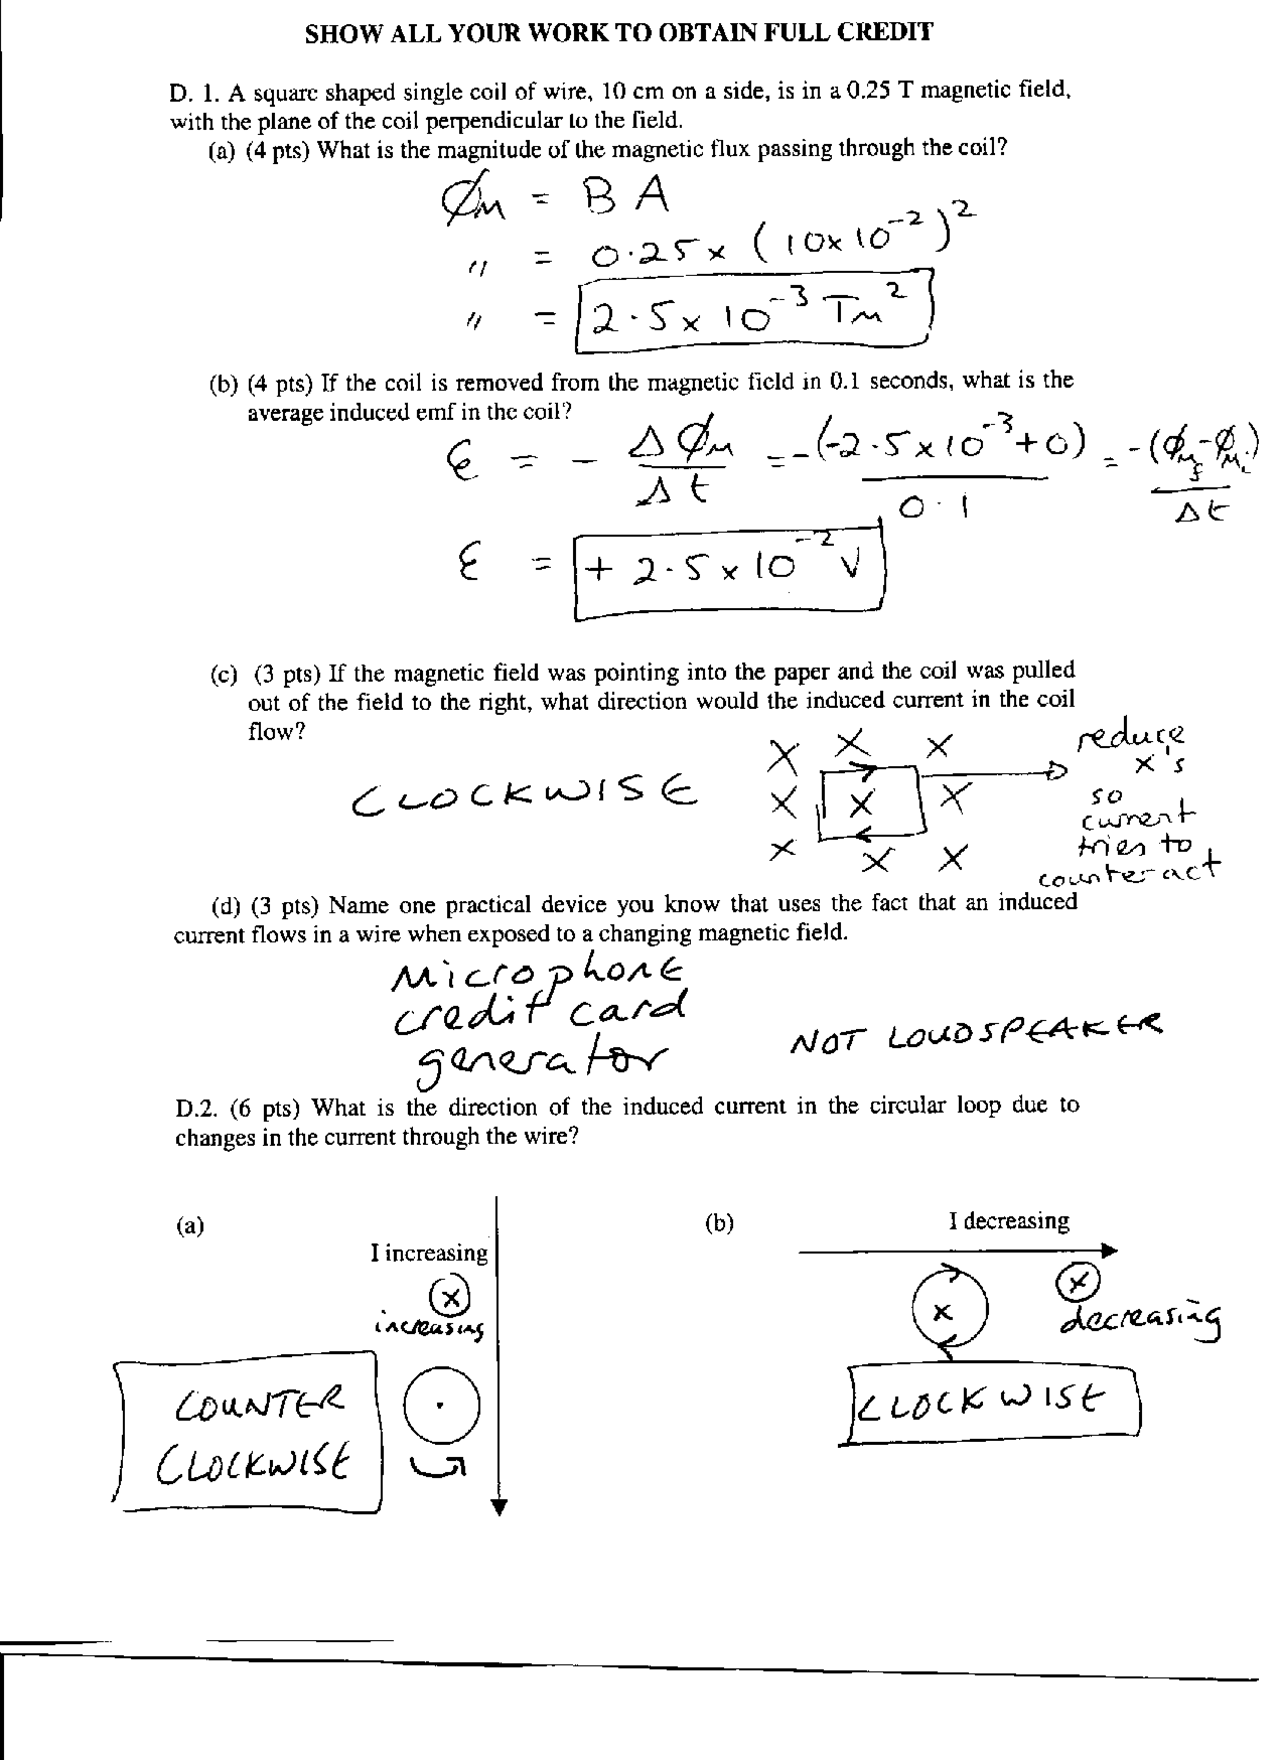 SHOW ALL YOUR WORK TO OBTAIN FULL CREDIT
D. 1. A square shaped single coil of wire, 10 cm on a side, is in a 0.25 T magnetic field,
with the plane of the coil perpendicular to the field.
(a) (4 pts) What is the magnitude of the magnetic flux passing through the coil?
ϕ_M = B A
" = 0.25 × (10×10^-2)^2
" = 2.5 × 10^-3 Tm^2
(b) (4 pts) If the coil is removed from the magnetic field in 0.1 seconds, what is the
average induced emf in the coil?
ℰ = - Δϕ_M / Δt = -(-2.5×10^-3+0) / 0.1 = -(ϕ_Mf - ϕ_Mi) / Δt
ℰ = + 2.5 × 10^-2 V
(c) (3 pts) If the magnetic field was pointing into the paper and the coil was pulled
out of the field to the right, what direction would the induced current in the coil
flow?
CLOCKWISE
X X X
X X X
X X X
reduce
x's
so
current
tries to
counteract
(d) (3 pts) Name one practical device you know that uses the fact that an induced
current flows in a wire when exposed to a changing magnetic field.
Microphone
credit card
generator
NOT LOUDSPEAKER
D.2. (6 pts) What is the direction of the induced current in the circular loop due to
changes in the current through the wire?
(a)
I increasing
X
increasing
COUNTER
CLOCKWISE
(b)
I decreasing
X
X
decreasing
CLOCKWISE